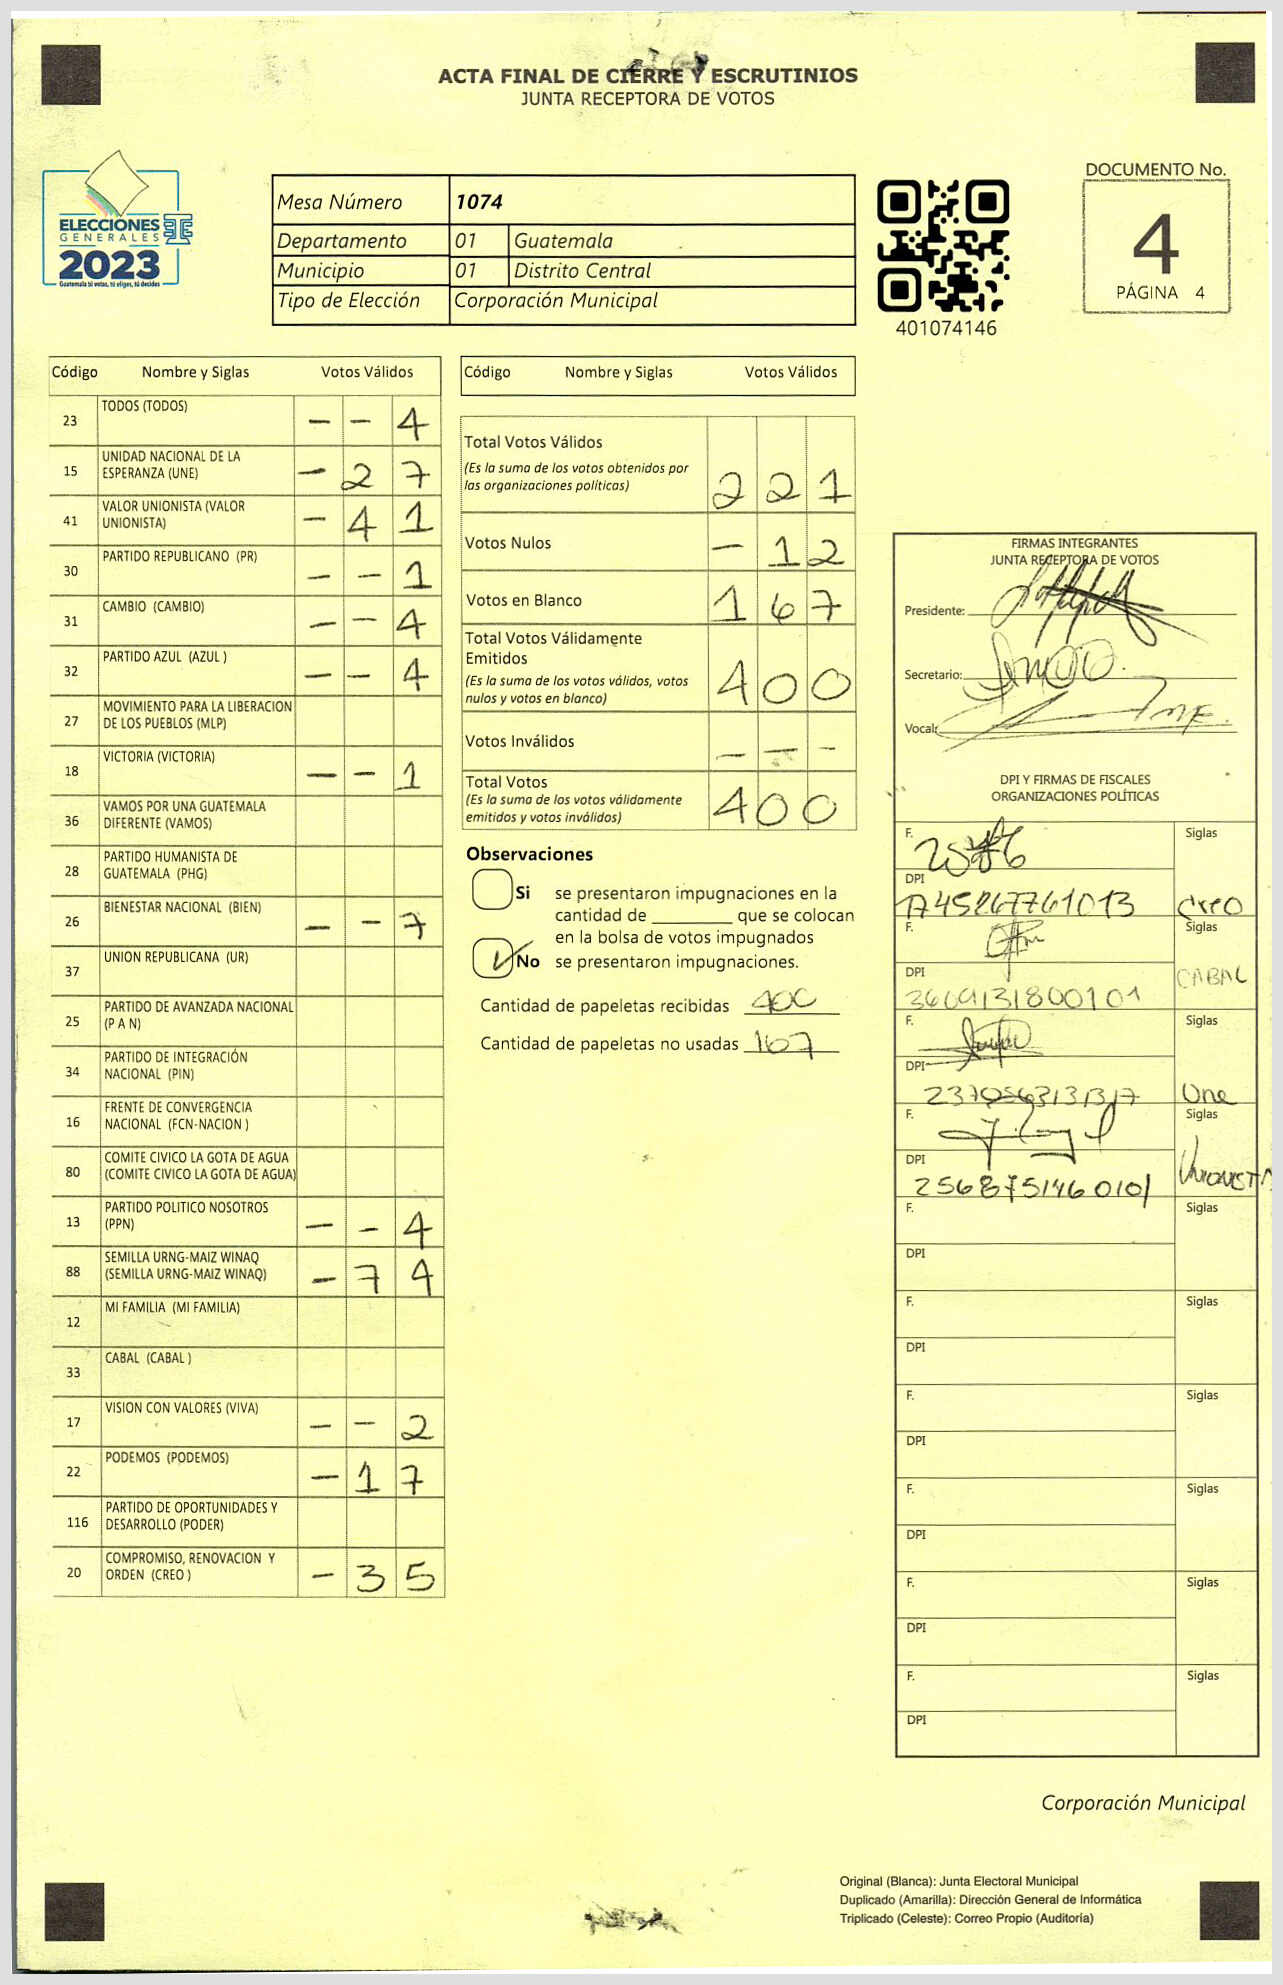 ACTA FINAL DE CIERRE Y ESCRUTINIOS
JUNTA RECEPTORA DE VOTOS
ELECCIONES
GENERALES
2023
Guatemala tú votas, tú eliges, tú decides
Mesa Número 1074
Departamento 01 Guatemala
Municipio 01 Distrito Central
Tipo de Elección Corporación Municipal
401074146
DOCUMENTO No.
4
PÁGINA 4
Código Nombre y Siglas Votos Válidos
23 TODOS (TODOS) - - 4
15 UNIDAD NACIONAL DE LA
ESPERANZA (UNE) - 2 7
41 VALOR UNIONISTA (VALOR
UNIONISTA) - 4 1
30 PARTIDO REPUBLICANO (PR) - - 1
31 CAMBIO (CAMBIO) - - 4
32 PARTIDO AZUL (AZUL ) - - 4
27 MOVIMIENTO PARA LA LIBERACION
DE LOS PUEBLOS (MLP)
18 VICTORIA (VICTORIA) - - 1
36 VAMOS POR UNA GUATEMALA
DIFERENTE (VAMOS)
28 PARTIDO HUMANISTA DE
GUATEMALA (PHG)
26 BIENESTAR NACIONAL (BIEN) - - 7
37 UNION REPUBLICANA (UR)
25 PARTIDO DE AVANZADA NACIONAL
(P A N)
34 PARTIDO DE INTEGRACIÓN
NACIONAL (PIN)
16 FRENTE DE CONVERGENCIA
NACIONAL (FCN-NACION )
80 COMITE CIVICO LA GOTA DE AGUA
(COMITE CIVICO LA GOTA DE AGUA)
13 PARTIDO POLITICO NOSOTROS
(PPN) - - 4
88 SEMILLA URNG-MAIZ WINAQ
(SEMILLA URNG-MAIZ WINAQ) - 7 4
12 MI FAMILIA (MI FAMILIA)
33 CABAL (CABAL )
17 VISION CON VALORES (VIVA) - - 2
22 PODEMOS (PODEMOS) - 1 7
116 PARTIDO DE OPORTUNIDADES Y
DESARROLLO (PODER)
20 COMPROMISO, RENOVACION Y
ORDEN (CREO ) - 3 5
Código Nombre y Siglas Votos Válidos
Total Votos Válidos
(Es la suma de los votos obtenidos por
las organizaciones políticas) 2 2 1
Votos Nulos - 1 2
Votos en Blanco 1 6 7
Total Votos Válidamente
Emitidos
(Es la suma de los votos válidos, votos
nulos y votos en blanco) 4 0 0
Votos Inválidos - - -
Total Votos
(Es la suma de los votos válidamente
emitidos y votos inválidos) 4 0 0
Observaciones
Si se presentaron impugnaciones en la
cantidad de ________ que se colocan
en la bolsa de votos impugnados
No se presentaron impugnaciones.
Cantidad de papeletas recibidas 400
Cantidad de papeletas no usadas 167
FIRMAS INTEGRANTES
JUNTA RECEPTORA DE VOTOS
Presidente:
Secretario:
Vocal:
DPI Y FIRMAS DE FISCALES
ORGANIZACIONES POLÍTICAS
F. Siglas
DPI
Creo
F. Siglas
DPI
CABAL
F. Siglas
DPI
Une
F. Siglas
DPI
2568751460101 UNIONISTA
F. Siglas
DPI
F. Siglas
DPI
F. Siglas
DPI
F. Siglas
DPI
F. Siglas
DPI
F. Siglas
DPI
Corporación Municipal
Original (Blanca): Junta Electoral Municipal
Duplicado (Amarilla): Dirección General de Informática
Triplicado (Celeste): Correo Propio (Auditoría)